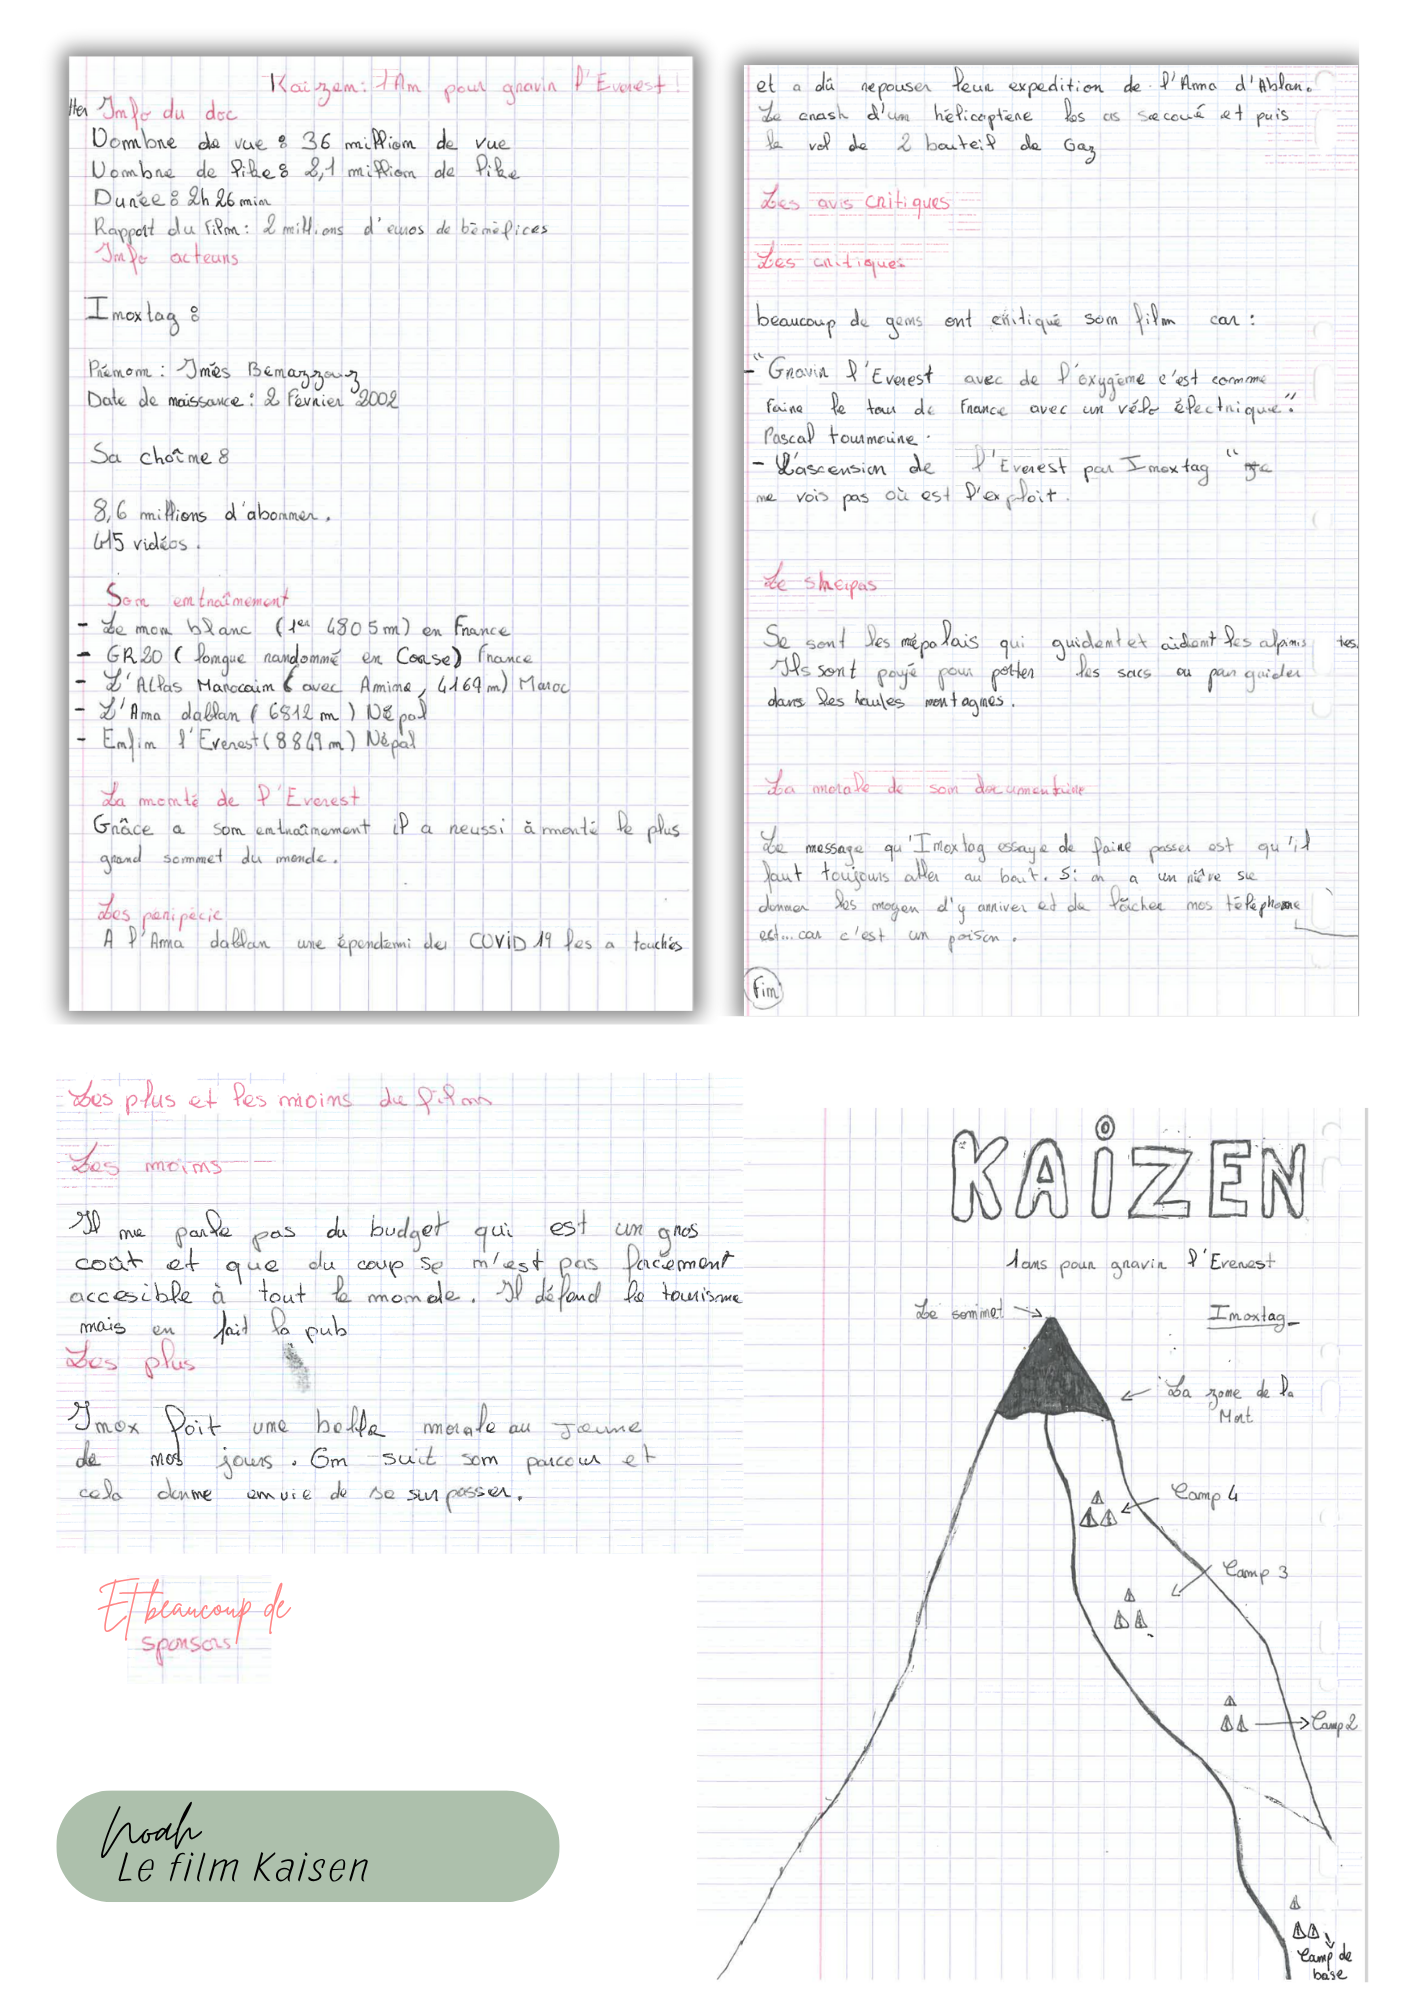 Kaizem: 1 Am pour gravir l'Everest !
Info du doc
Nombre de vue : 36 million de vue
Nombre de like : 2,1 million de like
Durée : 2h 26 min
Rapport du film : 2 millions d'euros de bénéfices
Info acteurs
Inoxtag :
Prénom : Inès Benazzouz
Date de naissance : 2 Février 2002
Sa chaîne :
8,6 millions d'abonner.
415 vidéos.
Son entraînement
- Le mon blanc (1er 4805 m) en France
- GR20 ( longue randonné en Corse) France
- L'Atlas Marocain ( avec Amine, 4169 m) Maroc
- L'Ama dablan ( 6812 m ) Népal
- Enfin l'Everest ( 8849 m ) Népal
La monté de l'Everest
Grâce a son entraînement il a reussi à monté le plus
grand sommet du monde.
Les péripécie
A l'Anma dablan une épendemi de COVID 19 les a touchés
et a dû repouser leur expedition de l'Anma d'Ablan.
Le crash d'un hélicoptère les as secoué et puis
le vol de 2 bouteil de Gaz
Les avis critiques
Les critiques
beaucoup de gens ont critiqué son film car :
- "Gravir l'Everest avec de l'oxygène c'est comme
faire le tour de France avec un vélo électrique".
Pascal tournaire.
- L'ascension de l'Everest par Inoxtag "je
ne vois pas où est l'exploit.
Le sherpas
Se sont les népalais qui guident et aident les alpinis tes.
Ils sont payé pour porter les sacs ou par guider
dans les hautes montagnes.
La morale de son documentaire
Le message qu'Inoxtag essaye de faire passer est qu'il
faut toujours aller au bout. Si on a un rêve se
donner les moyen d'y arriver et de lâcher nos téléphone
est... car c'est un poison.
Fin
Les plus et les moins du film
Les moins
Il ne parle pas du budget qui est un gros
coût et que du coup se n'est pas forcément
accesible à tout le monde. Il défend le tourisme
mais en fait la pub
Les plus
Inox fait une belle morale au jeune
de nos jours. On suit son parcour et
cela donne envie de se surpasser.
Et beaucoup de
sponsors
KAiZEN
1 ans pour gravir l'Everest
Le sommet
Inoxtag
La zone de la
Mort
Camp 4
Camp 3
Camp 2
Camp de
base
Noah
Le film Kaisen